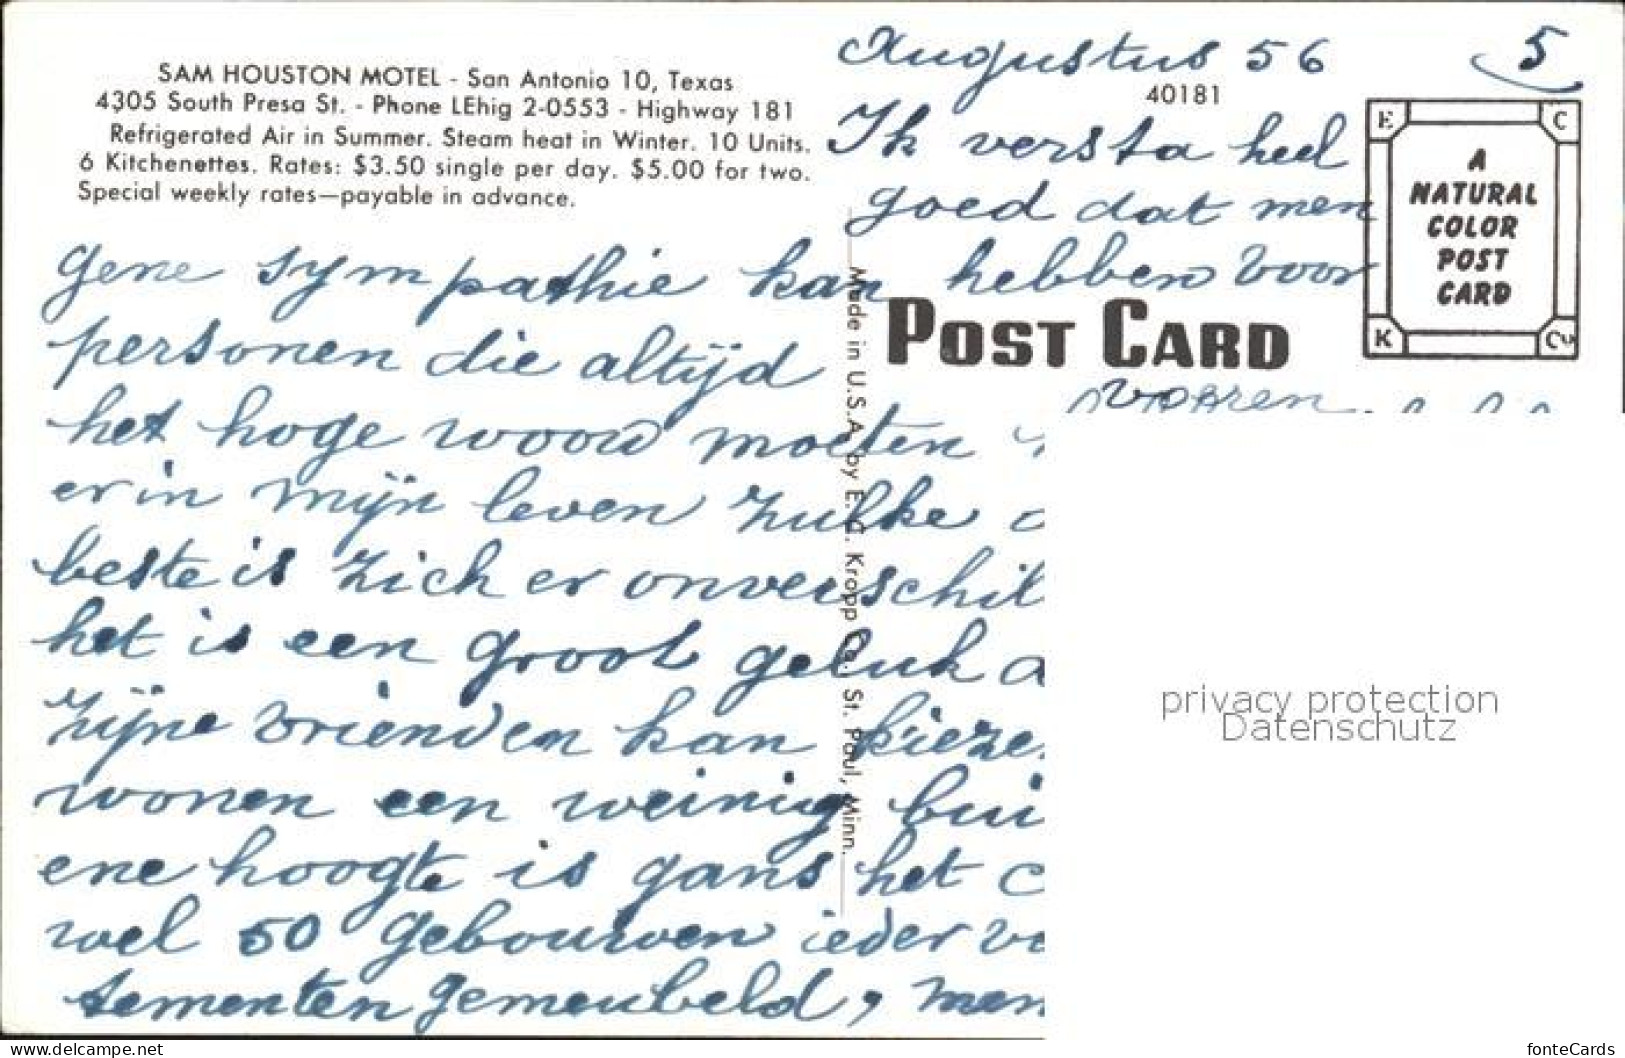 SAM HOUSTON MOTEL - San Antonio 10, Texas
4305 South Presa St. - Phone LEhig 2-0553 - Highway 181
Refrigerated Air in Summer. Steam heat in Winter. 10 Units.
6 Kitchenettes. Rates: $3.50 single per day. $5.00 for two.
Special weekly rates—payable in advance.
Augustus 56
5
40181
Ik versta heel
goed dat men
gene sympathie kan hebben voor
personen die altijd
het hoge woord moeten
er in mijn leven zulke
beste is zich er onverschil
het is een groot geluk
zijne vrienden kan kieze
wonen een weinig bui
ene hoogte is gans het
wel 50 gebouwen ieder
tementen gemeubeld, men
POST CARD
Made in U.S.A. by E. C. Kropp Co. St. Paul, Minn.
E C
K Co
A
NATURAL
COLOR
POST
CARD
privacy protection
Datenschutz
www.delcampe.net
fonteCards